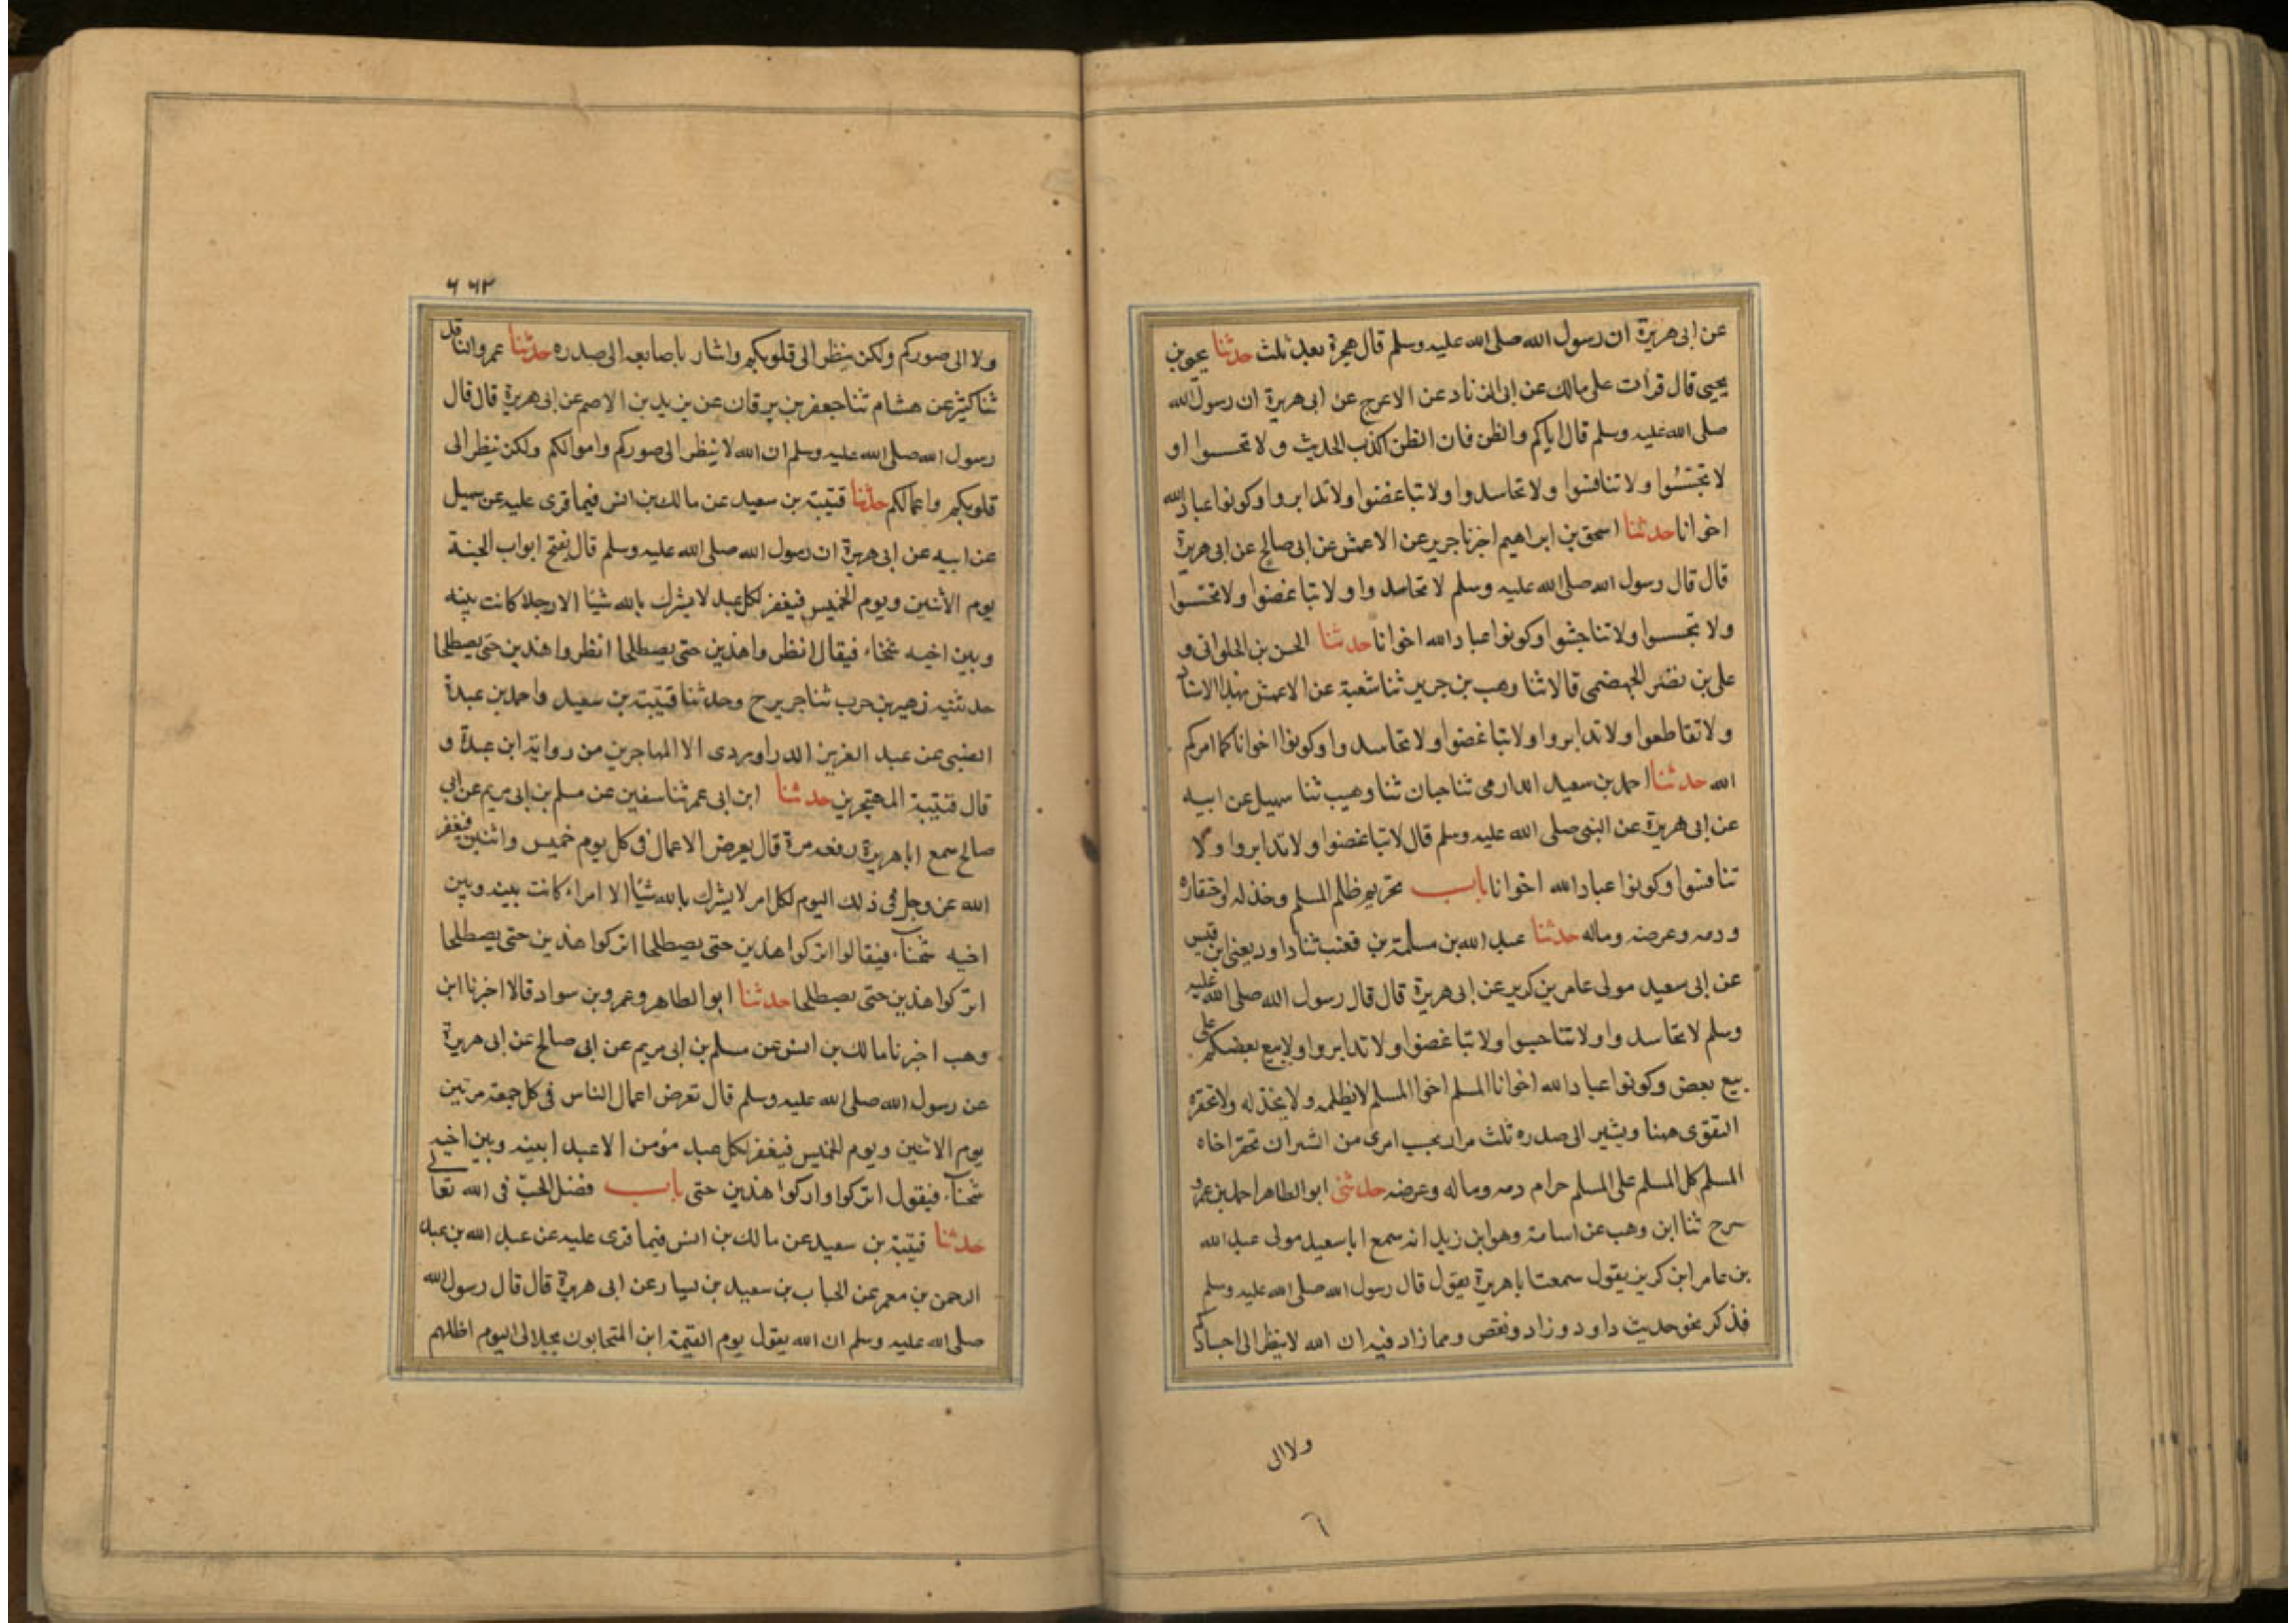 عن ابى هريرة ان رسول الله صلى الله عليه وسلم قال لا هجرة بعد ثلث حدثنا يحيى بن
يحيى قال قرأت على مالك عن ابى الزناد عن الاعرج عن ابى هريرة ان رسول الله
صلى الله عليه وسلم قال اياكم والظن فان الظن اكذب الحديث ولا تحسسوا او
لا تجسّسُوا ولا تنافسوا ولا تحاسدوا ولا تباغضوا ولا تدابروا وكونوا عباد الله
اخوانا حدثنا اسحق بن ابراهيم اخبرنا جرير عن الاعمش عن ابى صالح عن ابى هريرة
قال قال رسول الله صلى الله عليه وسلم لا تحاسدوا ولا تباغضوا ولا تحسسوا
ولا تجسسوا ولا تناجشوا وكونوا عباد الله اخوانا حدثنا الحسن بن الحلوانى و
على بن نضر الجهضمى قالا ثنا وهب بن جرير ثنا شعبة عن الاعمش بهذا الاسناد
ولا تقاطعوا ولا تدابروا ولا تباغضوا ولا تحاسدوا وكونوا اخوانا كما امركم
الله حدثنا احمد بن سعيد الدارمى ثنا حبان ثنا وهيب ثنا سهيل عن ابيه
عن ابى هريرة عن النبى صلى الله عليه وسلم قال لا تباغضوا ولا تدابروا ولا
تنافسوا وكونوا عباد الله اخوانا باب تحريم ظلم المسلم وخذله واحتقاره
ودمه وعرضه وماله حدثنا عبد الله بن مسلمة بن قعنب ثنا داود يعنى ابن قيس
عن ابى سعيد مولى عامر بن كريز عن ابى هريرة قال قال رسول الله صلى الله عليه
وسلم لا تحاسدوا ولا تناجسوا ولا تباغضوا ولا تدابروا ولا يبع بعضكم على
بيع بعض وكونوا عباد الله اخوانا المسلم اخوا المسلم لا يظلمه ولا يخذله ولا يحقره
التقوى ههنا ويشير الى صدره ثلث مرار بحسب امرى من الشر ان يحقر اخاه
المسلم كل المسلم على المسلم حرام دمه وماله وعرضه حدثنى ابو الطاهر احمد بن عمرو
سرح ثنا ابن وهب عن اسامة وهو ابن زيد انه سمع ابا سعيد مولى عبد الله
بن عامر ابن كريز يقول سمعت ابا هريرة يقول قال رسول الله صلى الله عليه وسلم
فذكر نحو حديث داود وزاد ونقص ومما زاد فيه ان الله لا ينظر الى اجسادكم
ولا الى
٦
٦٦٣
ولا الى صوركم ولكن ينظر الى قلوبكم واشار باصابعه الى صدره حدثنا عمرو الناقد
ثنا كثير عن هشام ثنا جعفر بن برقان عن يزيد بن الاصم عن ابى هريرة قال قال
رسول الله صلى الله عليه وسلم ان الله لا ينظر الى صوركم واموالكم ولكن ينظر الى
قلوبكم واعمالكم حدثنا قتيبة بن سعيد عن مالك بن انس فيما قرى عليه عن سهيل
عن ابيه عن ابى هريرة ان رسول الله صلى الله عليه وسلم قال يفتح ابواب الجنة
يوم الاثنين ويوم الخميس فيغفر لكل عبد لا يشرك بالله شيئا الا رجلا كانت بينه
وبين اخيه شحناء فيقال انظروا هذين حتى يصطلحا انظروا هذين حتى يصطلحا
حدثنيه زهير بن حرب ثنا جرير ح وحدثنا قتيبة بن سعيد واحمد بن عبدة
الضبى عن عبد العزيز الدراوردى الا المهاجرين من رواية ابن عبدة و
قال قتيبة المهتجرين حدثنا ابن ابى عمر ثنا سفين عن مسلم بن ابى مريم عن ابى
صالح سمع ابا هريرة رفعه مرة قال يعرض الاعمال فى كل يوم خميس واثنين فيغفر
الله عز وجل فى ذلك اليوم لكل امر لا يشرك بالله شيئا الا امراء كانت بينه وبين
اخيه شحنآء فيقالوا اتركوا هذين حتى يصطلحا اتركوا هذين حتى يصطلحا
اتركوا هذين حتى يصطلحا حدثنا ابو الطاهر وعمرو بن سواد قالا اخبرنا ابن
وهب اخبرنا مالك بن انس عن مسلم بن ابى مريم عن ابى صالح عن ابى هريرة
عن رسول الله صلى الله عليه وسلم قال تعرض اعمال الناس فى كل جمعة مرتين
يوم الاثنين ويوم الخميس فيغفر لكل عبد مؤمن الا عبد ابينه وبين اخيه
شحنآء فيقول اتركوا واركوا هذين حتى باب فضل الحبّ فى الله تعالى
حدثنا قتيبة بن سعيد عن مالك بن انس فيما قرى عليه عن عبد الله بن عبد
الرحمن بن معمر عن الحباب بن سعيد بن يسار عن ابى هريرة قال قال رسول الله
صلى الله عليه وسلم ان الله يقول يوم القيمة ابن المتحابون بجلالى اليوم اظلهم